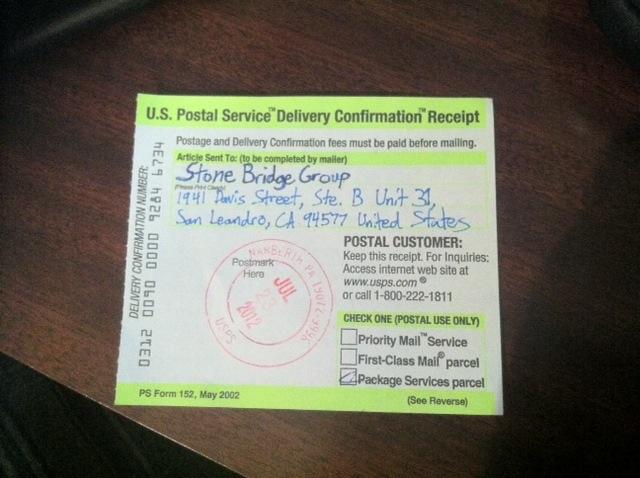 U.S. Postal Service™ Delivery Confirmation™ Receipt
Postage and Delivery Confirmation fees must be paid before mailing.
Article Sent To: (to be completed by mailer)
Stone Bridge Group
(Please Print Clearly)
1941 Davis Street, Ste. B Unit 31,
San Leandro, CA 94577 United States
DELIVERY CONFIRMATION NUMBER:
0312 0090 0000 9284 6734
Postmark
Here
NARBERTH PA 19072-9996
JUL
23
2012
USPS
POSTAL CUSTOMER:
Keep this receipt. For Inquiries:
Access internet web site at
www.usps.com®
or call 1-800-222-1811
CHECK ONE (POSTAL USE ONLY)
Priority Mail™ Service
First-Class Mail® parcel
Package Services parcel
PS Form 152, May 2002
(See Reverse)